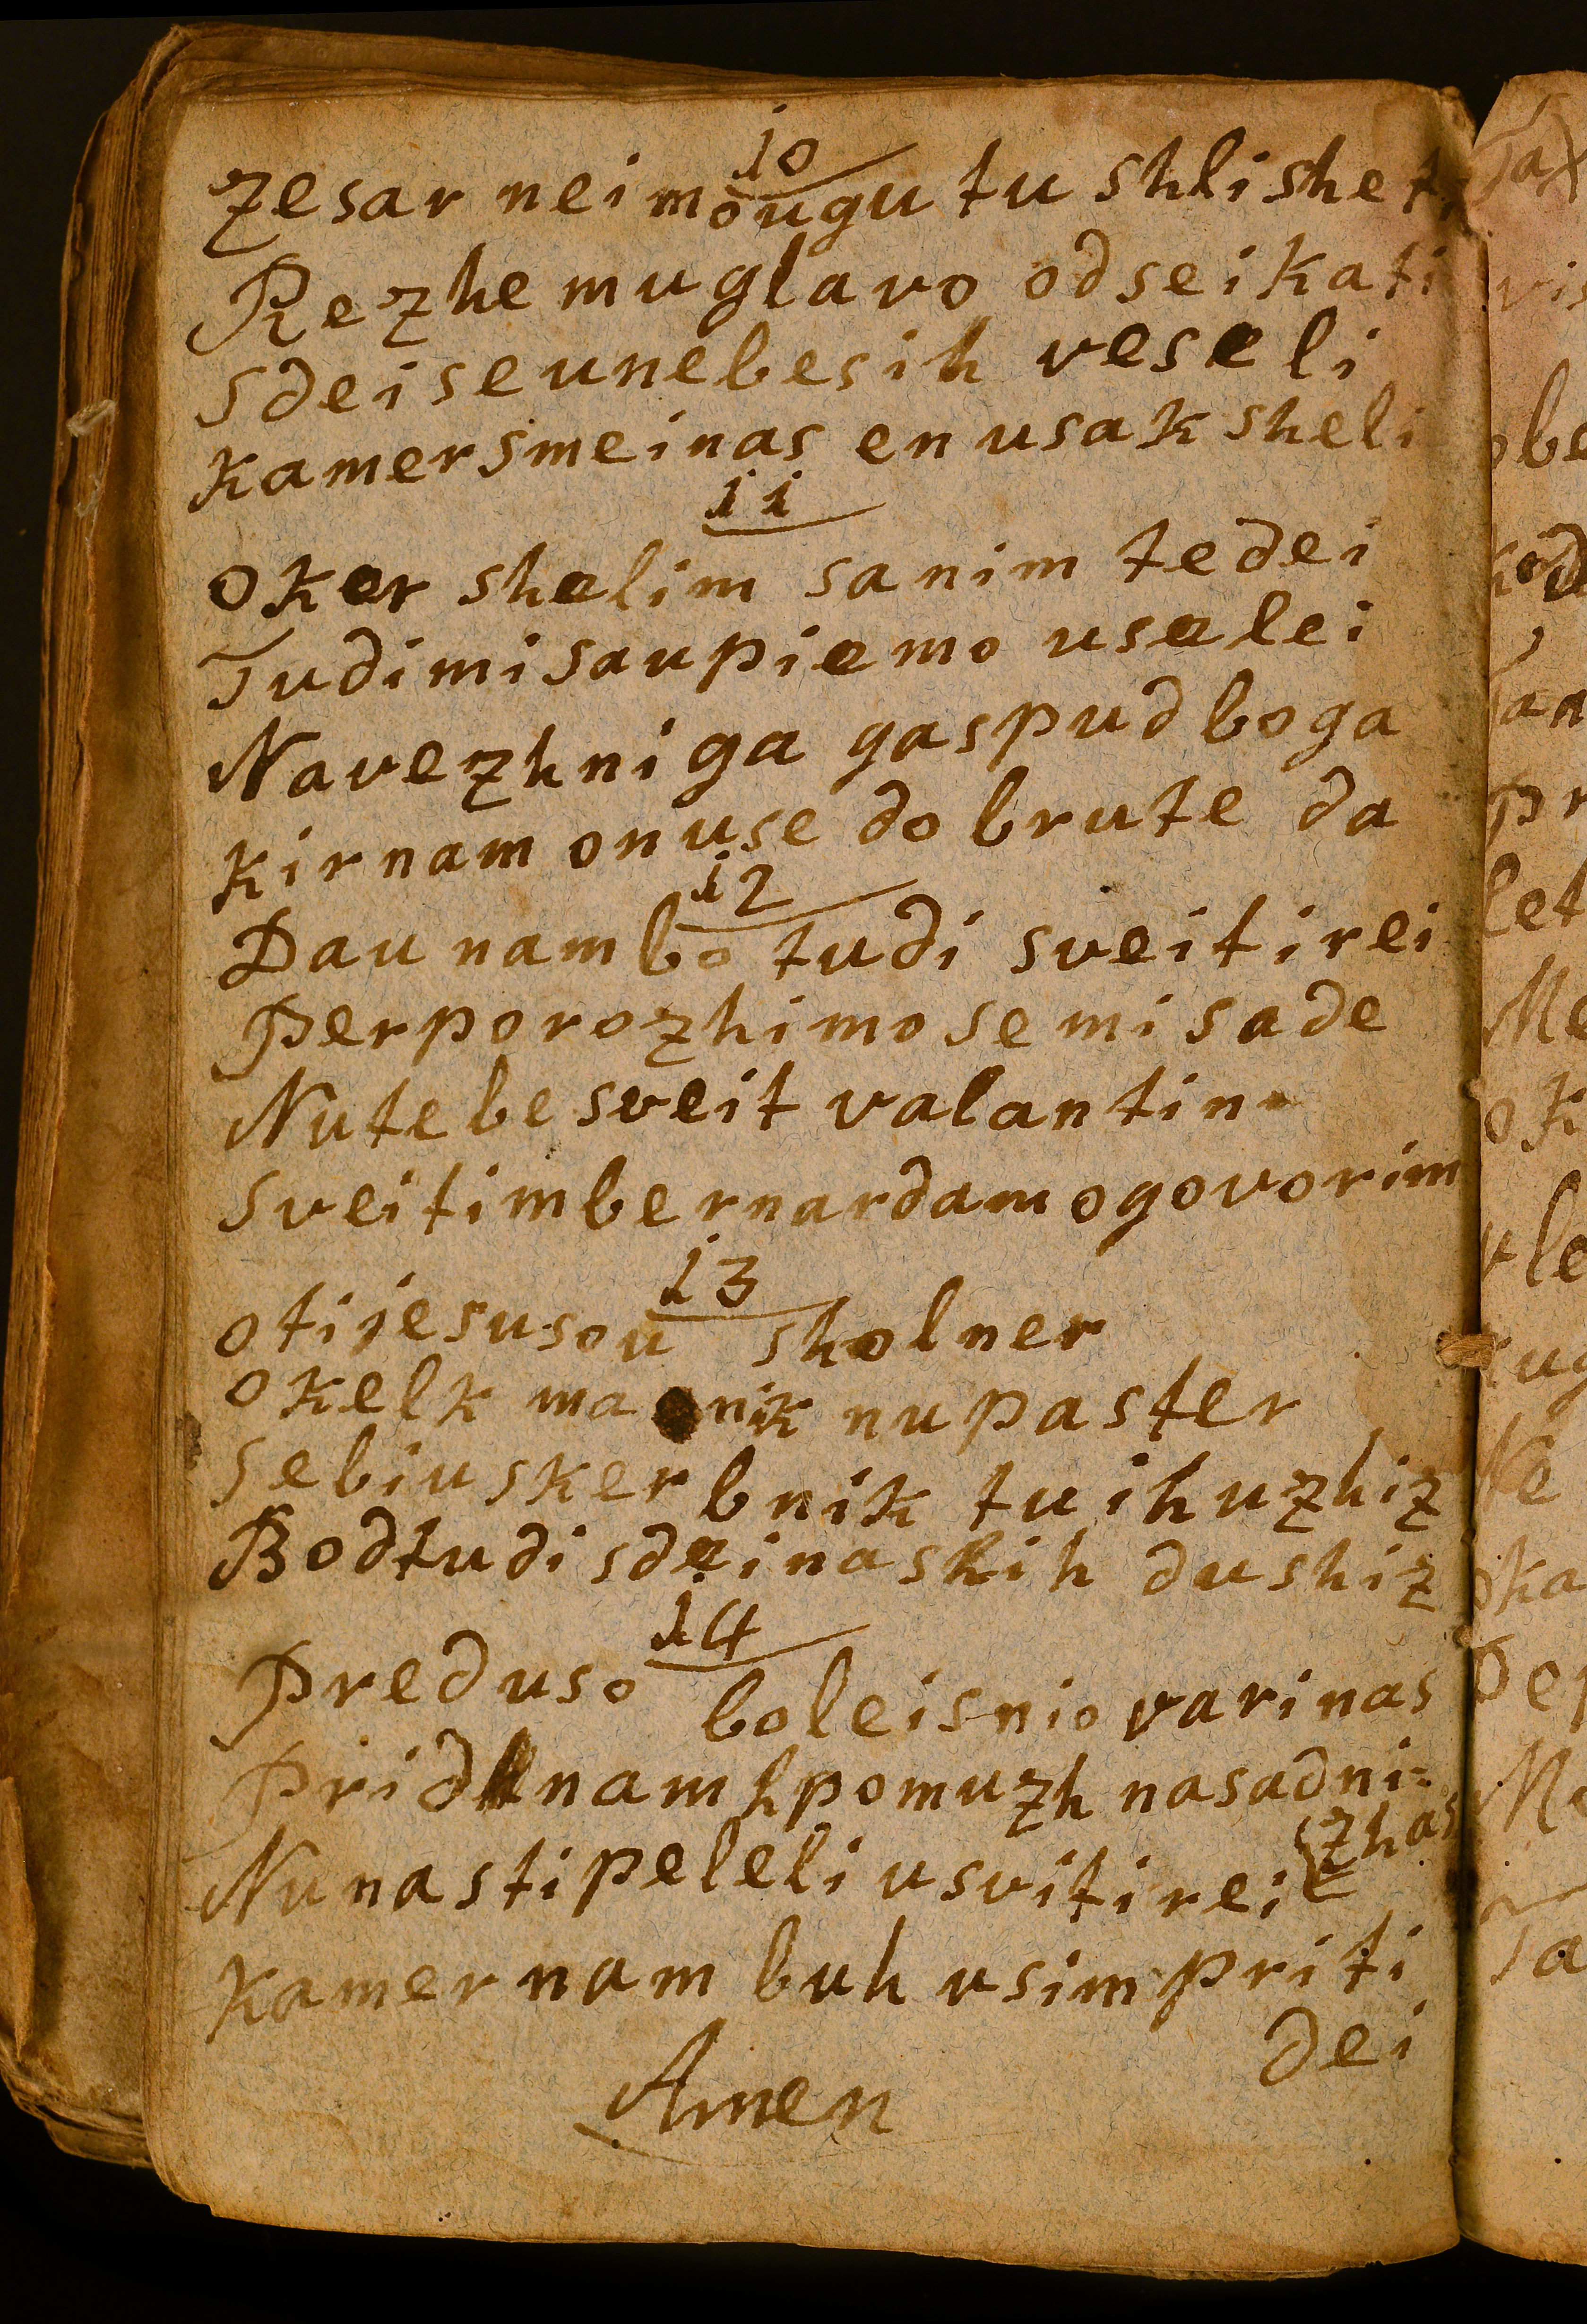 10
zesar neimougu tu shlisheti
Rezhe mu glavo odseikati
Sdei se unebesih veseli
Kamer smei nas en usak sheli
11
oker shelim sanim tedei
Tudi mi saupiemo uselei
Navezhniga gaspud boga
Kir nam on use dobrute da
12
Dau nam bo tudi sveiti rei
Perporozhimo se mi sade
Nu tebe sveit valantin
Sveitim bernardam ogovorim
13
oti jesusou sholner
o kelk ma nik nu paster
Se biu skerbnik tu ih uzhiz
Bod tudi sdei naskih dushiz
14
Pred uso boleisnio vari nas
Prid nam h pomuzh na sadni=
zhas
Nu nas ti peleli u sviti rei
Kamer nam buh usim priti
dei
Amen